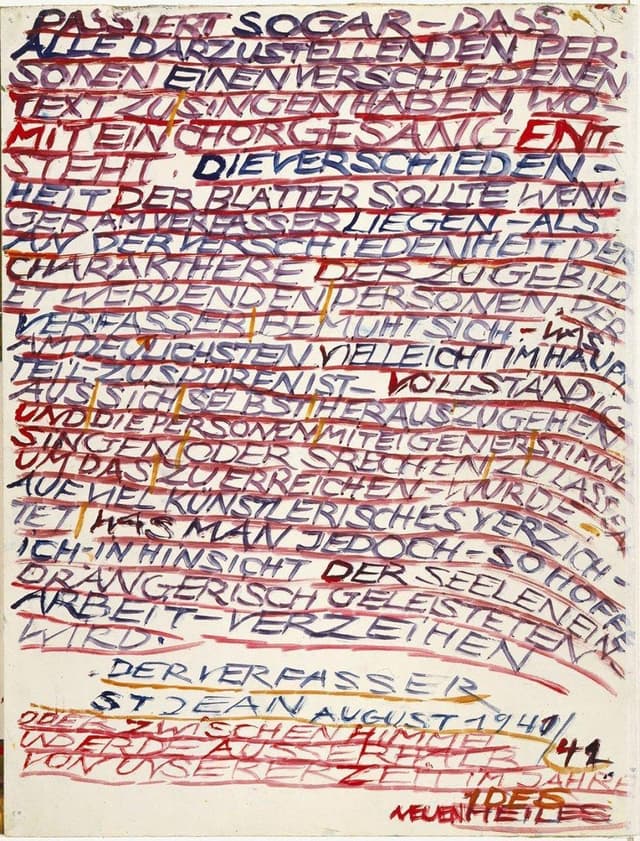 PASSIERT SOGAR – DASS
ALLE DARZUSTELLENDEN PER-
SONEN EINEN VERSCHIEDENEN
TEXT ZU SINGEN HABEN, WO-
MIT EIN CHORGESANG ENT-
STEHT. DIE VERSCHIEDEN-
HEIT DER BLÄTTER SOLLTE WENI-
GER AM VERFASSER LIEGEN – ALS
AN DER VERSCHIEDENHEIT DER
CHARAKTHERE DER ZU GEBILD
ET WERDENDEN PERSONEN. DER
VERFASSER BEMÜHT SICH – WAS
AM DEULICHSTEN VIELLEICHT IM HAUP
TEIL – ZU SPÜREN IST – VOLLSTÄNDIG
AUS SICH SELBST HERAUSZUGEHEN
UND DIE PERSONEN MIT EIGENER STIMME
SINGEN ODER SRECHEN ZU LASSEN
UM DAS ZU ERREICHEN – WURDE
AUF VIEL KÜNSTLERISCHES VERZICH-
TET WAS MAN JEDOCH – SO HOFFE
ICH – IN HINSICHT DER SEELENEIN
DRÄNGERISCH GELEISTETEN
ARBEIT – VERZEIHEN
WIRD.
DER VERFASSER
ST JEAN AUGUST 1941/
42
ODER ZWISCHEN HIMMEL
UND ERDE AUSSERHALB
VON UNSERER ZEIT IM JAHRE
1 DES
NEUEN HEILES